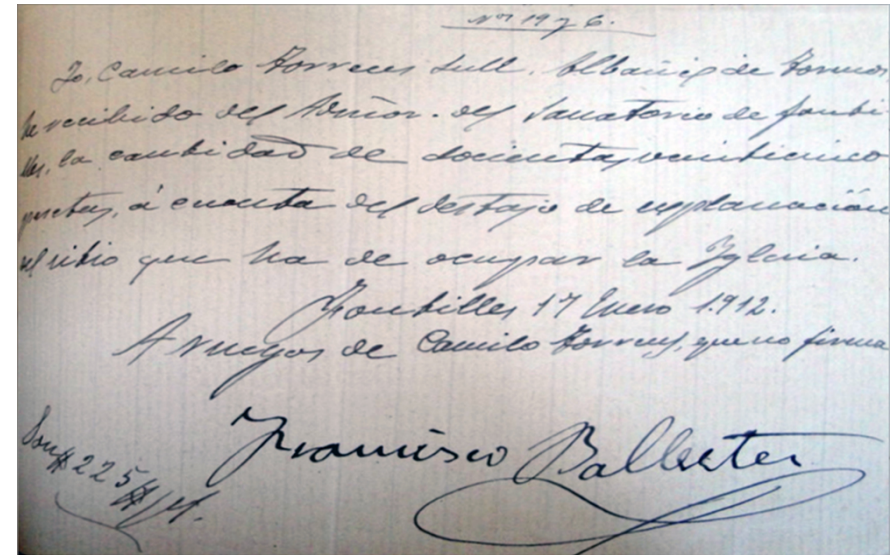 Nº 1976.
Yo, Camilo Torrens Sull, Albañil de Tormos
he recibido del Admor. del Sanatorio de Fonti
lles, la cantidad de docientas veinticinco
pesetas, á cuenta del destajo de explanación
del sitio que ha de ocupar la Iglesia.
Fontilles 17 Enero 1.912.
A ruegos de Camilo Torrens, que no firma
Francisco Ballester
Son # 225 # pt.